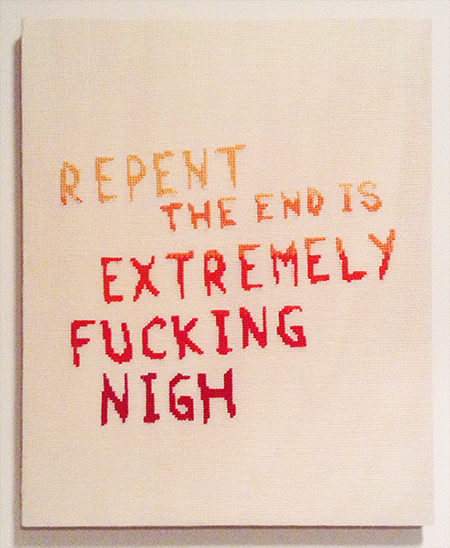 REPENT
THE END IS
EXTREMELY
FUCKING
NIGH